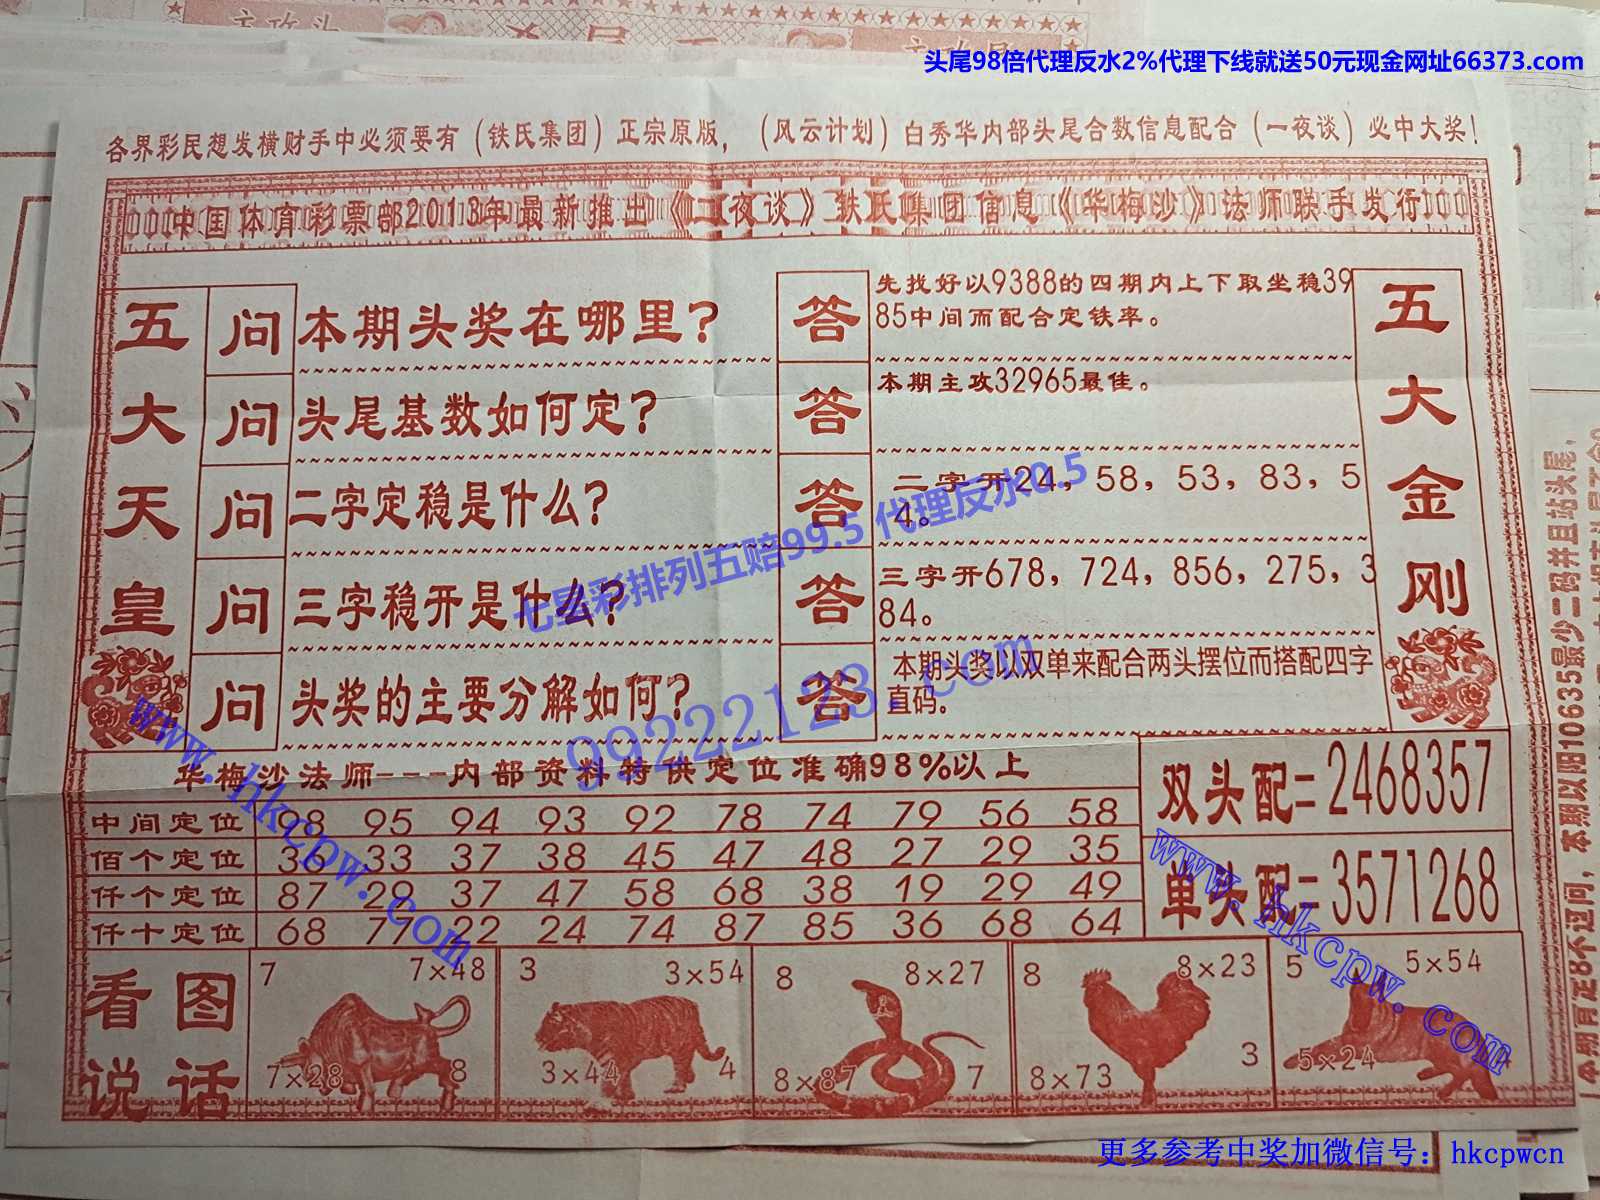 头尾98倍代理反水2%代理下线就送50元现金网址66373.com
各界彩民想发横财手中必须要有（铁氏集团）正宗原版，（风云计划）白秀华内部头尾合数信息配合（一夜谈）必中大奖！
中国体育彩票部2013年最新推出《一夜谈》铁氏集团信息《华梅沙》法师联手发行
五大天皇
问 本期头奖在哪里？
答 先找好以9388的四期内上下取坐稳39
85中间而配合定铁率。
问 头尾基数如何定？
答 本期主攻32965最佳。
问 二字定稳是什么？
答 二字开24，58，53，83，5
4。
问 三字稳开是什么？
答 三字开678，724，856，275，3
84。
问 头奖的主要分解如何？
答 本期头奖以双单来配合两头摆位而搭配四字
直码。
五大金刚
七星彩排列五赔99.5 代理反水0.5
99222123.com
华梅沙法师---内部资料特供定位准确98%以上
中间定位 98 95 94 93 92 78 74 79 56 58
佰个定位 36 33 37 38 45 47 48 27 29 35
仟个定位 87 29 37 47 58 68 38 19 29 49
仟十定位 68 77 22 24 74 87 85 36 68 64
双头配=2468357
单头配=3571268
www.hkcpw.com
www.hkcpw.com
看图
说话
7 7×48
7×28 8
3 3×54
3×44 4
8 8×27
8×87 7
8 8×23
8×73 3
5 5×54
5×24 4
更多参考中奖加微信号：hkcpwcn